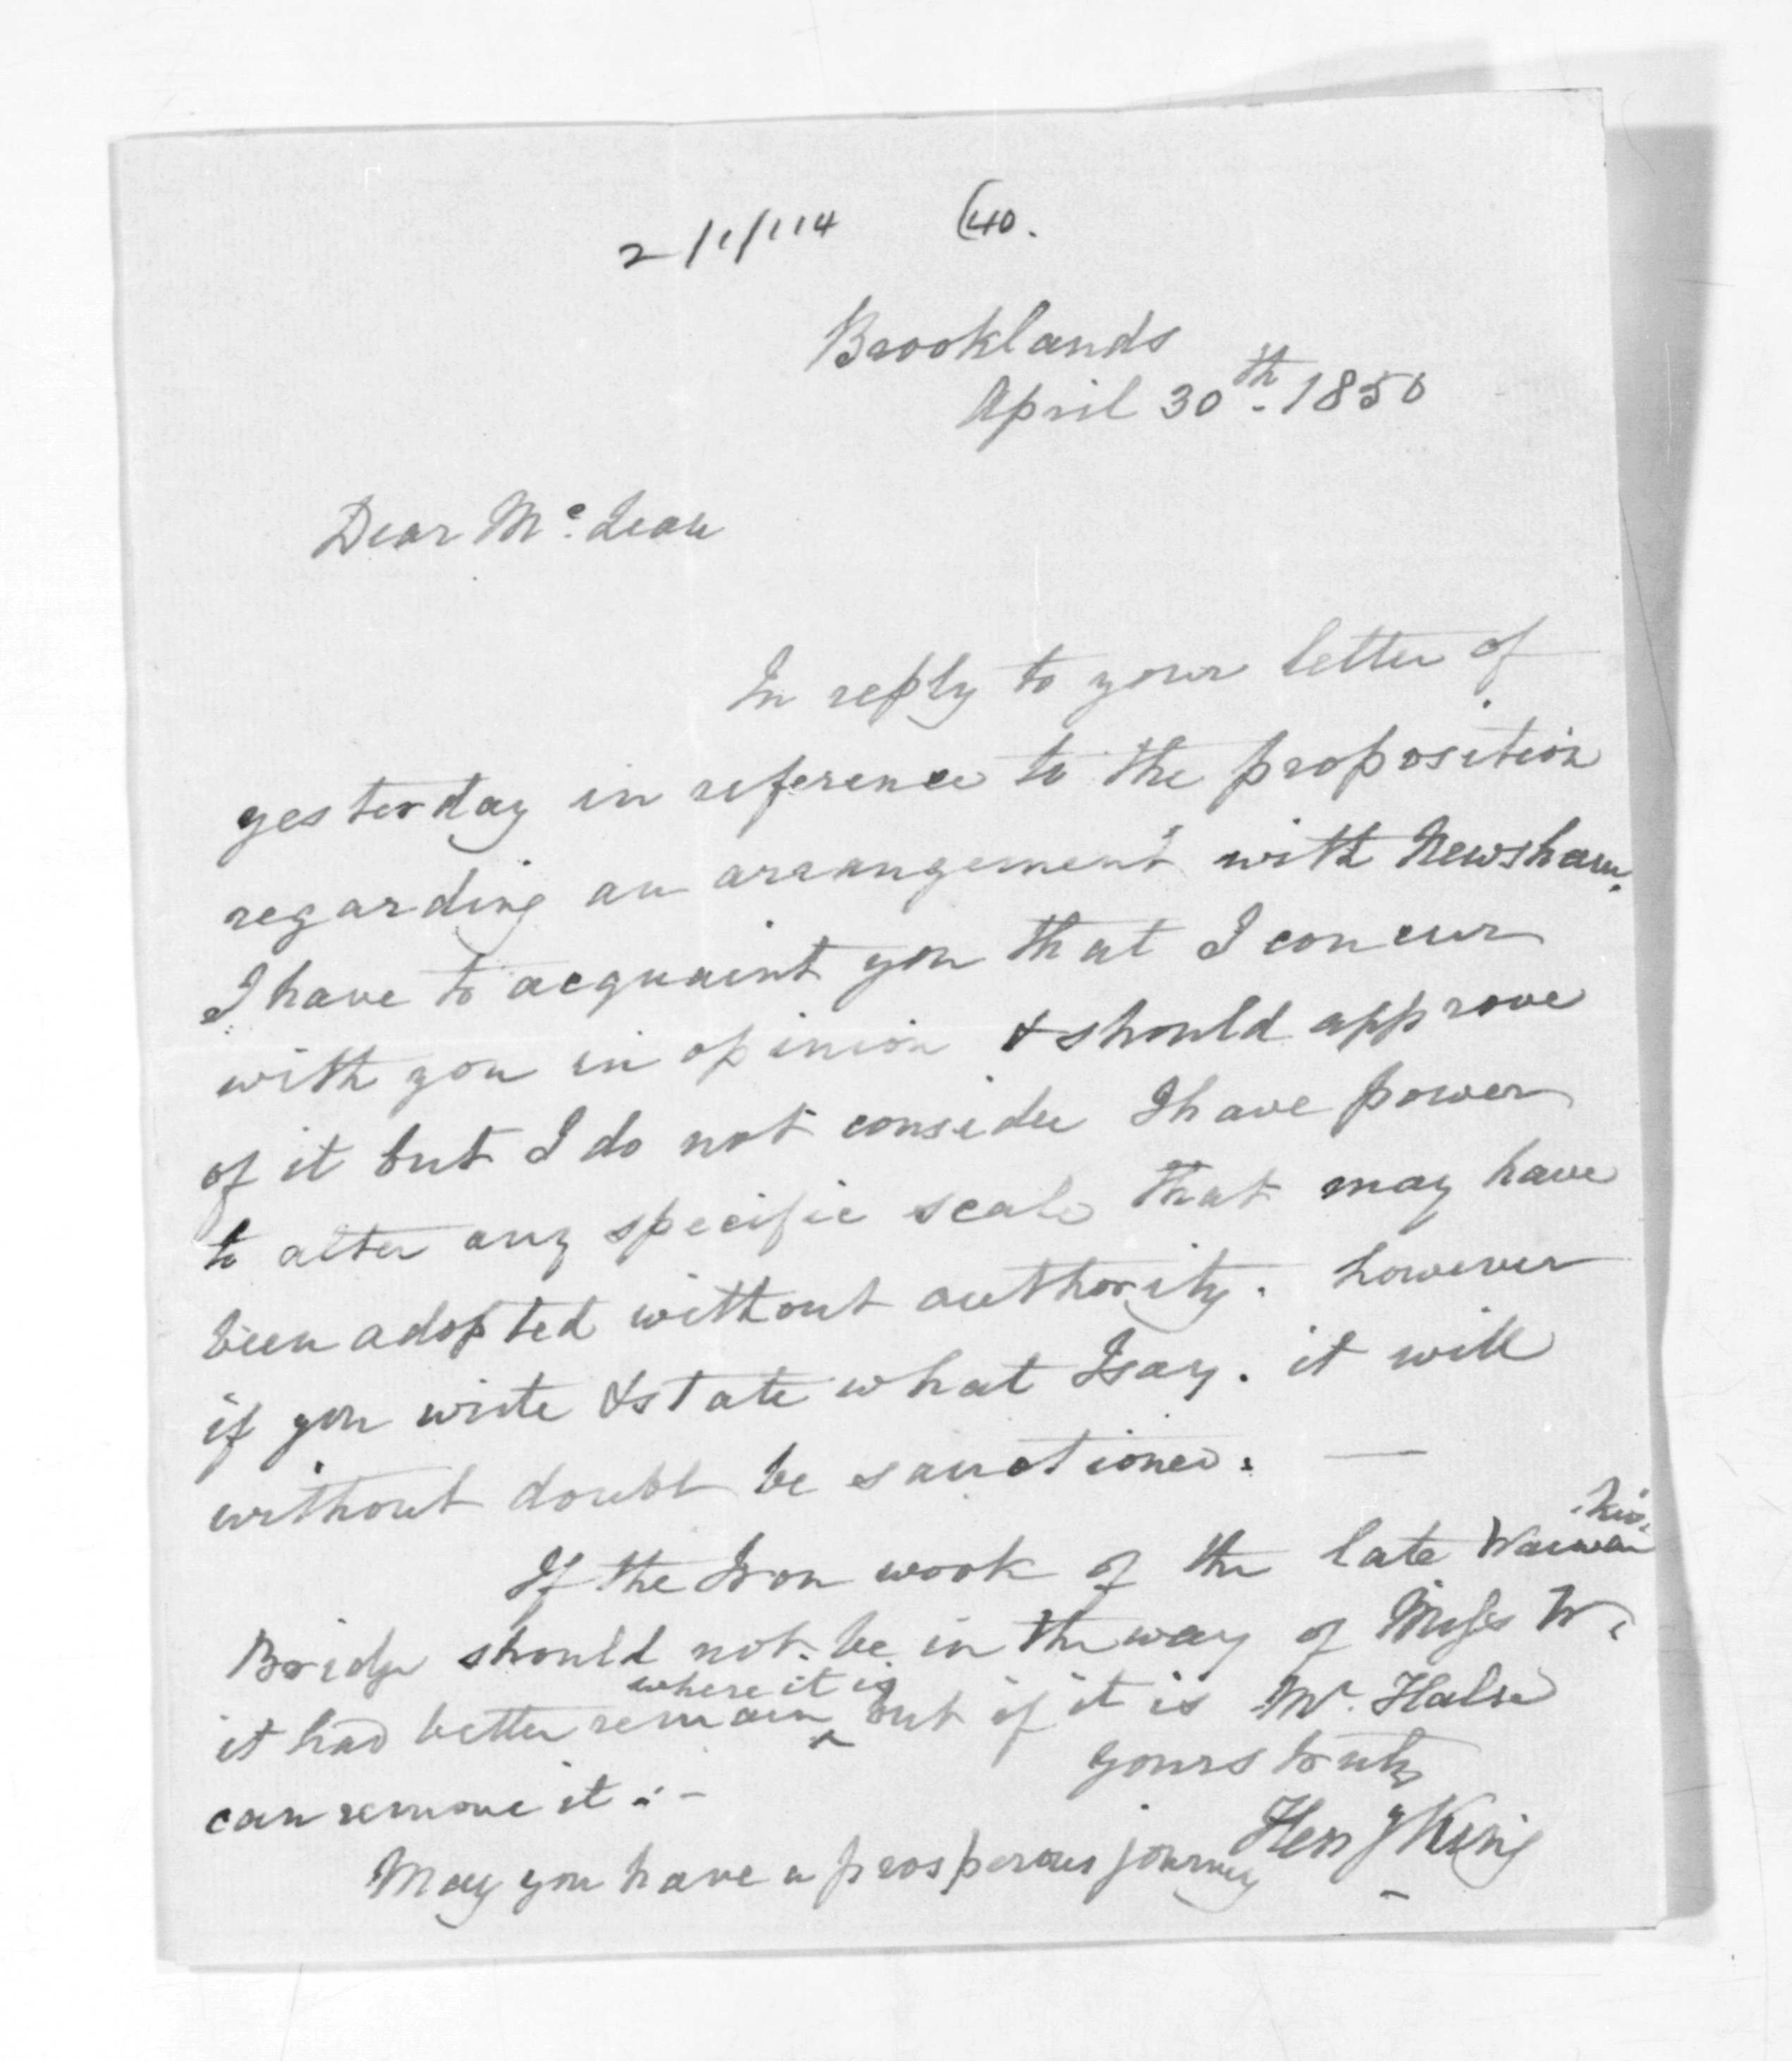 2/1/114 (40.
Brooklands
April 30th. 1850
Dear Mc. Lean
In reply to your letter of
yesterday in reference to the proposition
regarding an arrangement with Newsham.
I have to acquaint you that I concur
with you in opinion & should approve
of it but I do not consider I have power
to alter any specific scale that may have
been adopted without authority. however
if you write & state what I say. it will
without doubt be sanctioned. —
If the Iron work of the late Waiwakaio
Bridge should not be in the way of Miss W.
it had better remain where it is but if it is Mr. Halse
can remove it. -
yours truly
Hen King
May you have a prosperous journey